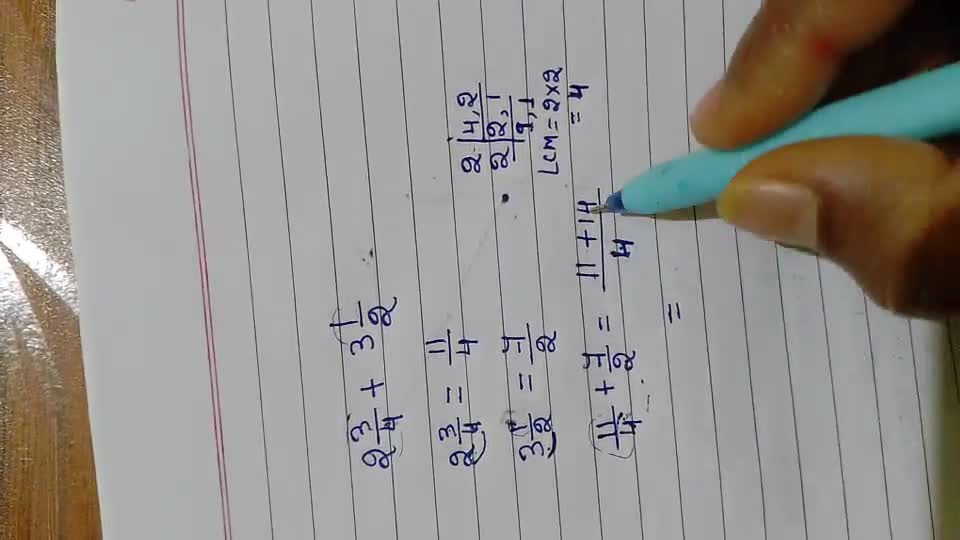 2 3/4 + 3 1/2
2 3/4 = 11/4
3 1/2 = 7/2
11/4 + 7/2 = 11 + 14/4
=
2 | 4, 2
2 | 2, 1
1, 1
LCM = 2 × 2
= 4